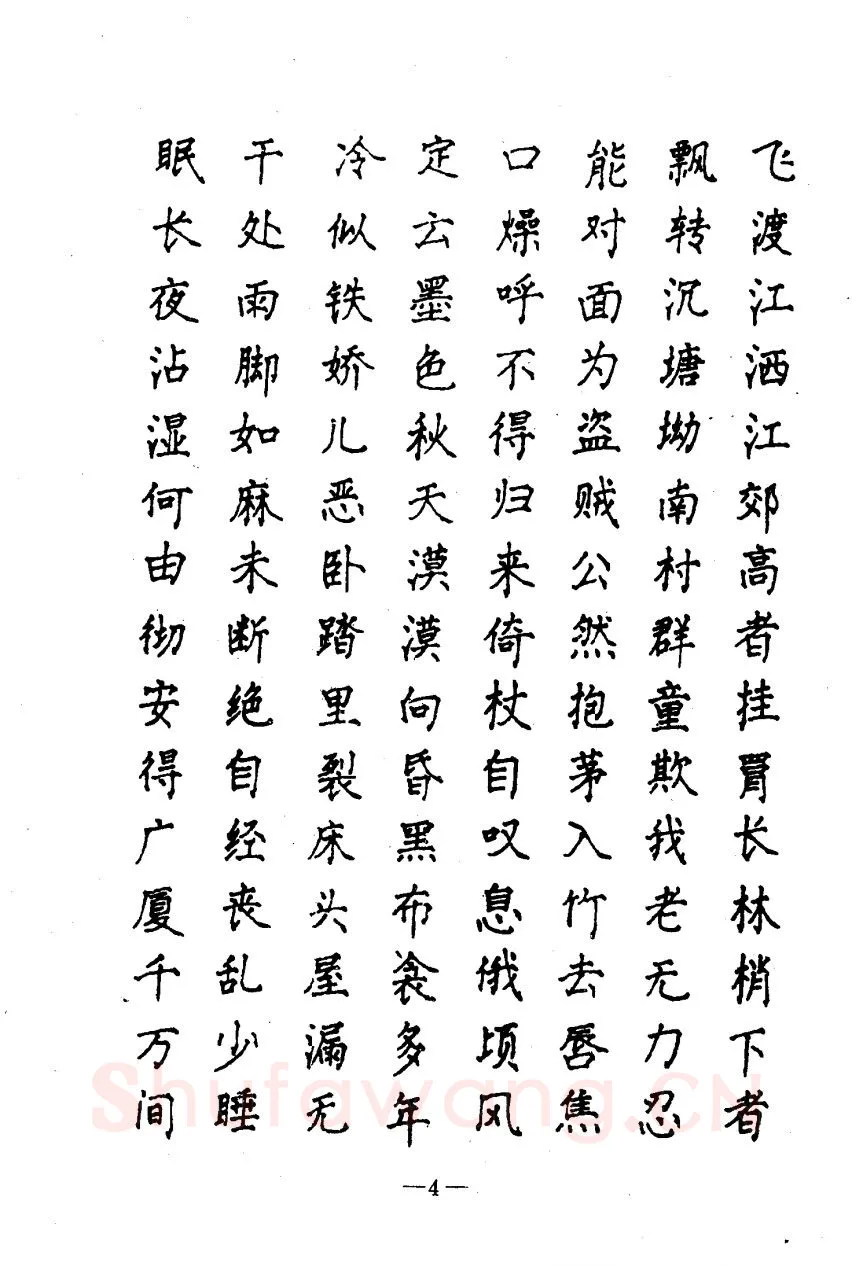 飞渡江洒江郊高者挂罥长林梢下者
飘转沉塘坳南村群童欺我老无力忍
能对面为盗贼公然抱茅入竹去唇焦
口燥呼不得归来倚杖自叹息俄顷风
定云墨色秋天漠漠向昏黑布衾多年
冷似铁娇儿恶卧踏里裂床头屋漏无
干处雨脚如麻未断绝自经丧乱少睡
眠长夜沾湿何由彻安得广厦千万间
—4—
Shufawang.CN